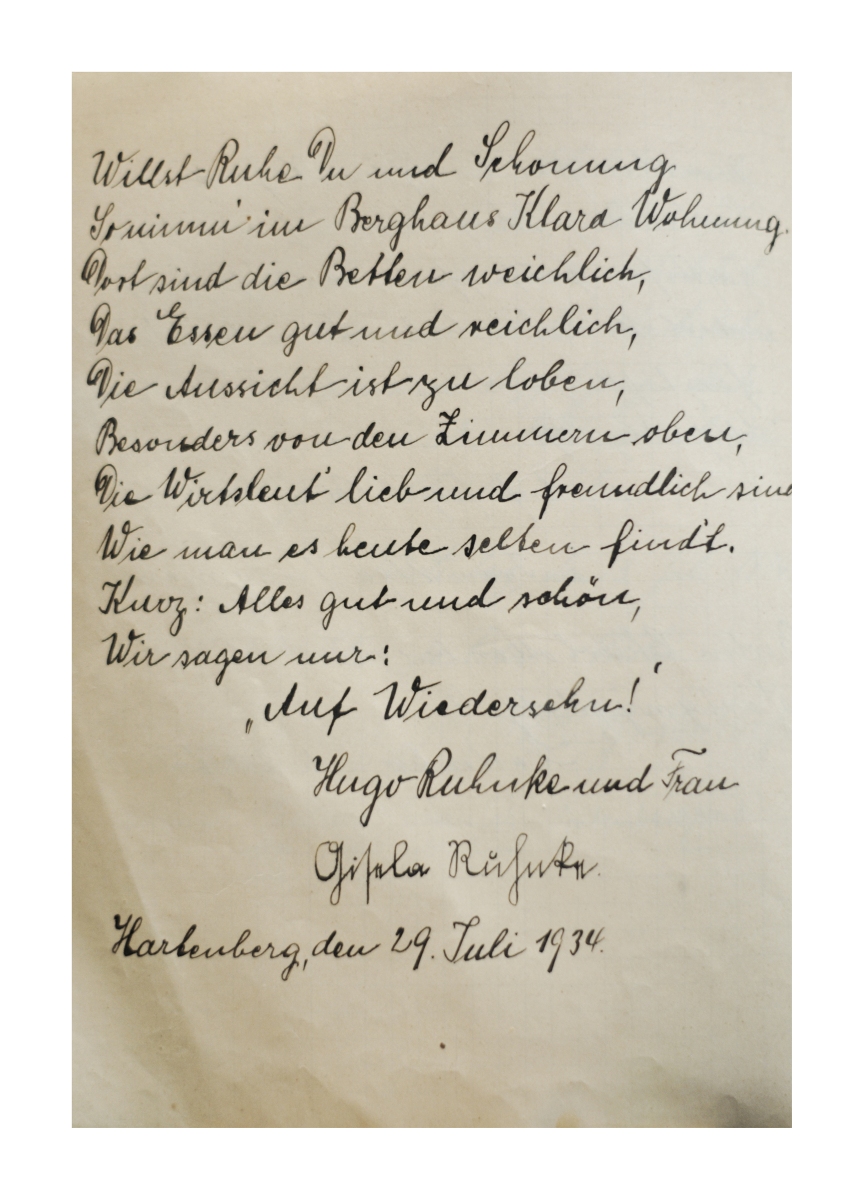 Willst Ruhe Du und Schonung
So nimm' im Berghaus Klara Wohnung.
Dort sind die Betten weichlich,
Das Essen gut und reichlich,
Die Aussicht ist zu loben,
Besonders von den Zimmern oben,
Die Wirtsleut' lieb und freundlich sind
Wie man es heute selten find't.
Kurz: Alles gut und schön,
Wir sagen nur:
„Auf Wiedersehn!'
Hugo Ruhnke und Frau
Gisela Ruhnke.
Hartenberg, den 29. Juli 1934.